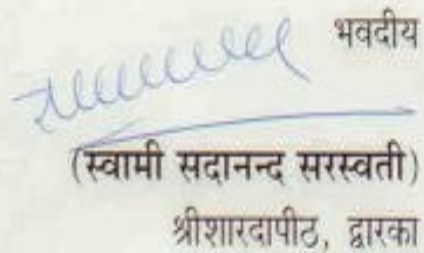 भवदीय
(स्वामी सदानन्द सरस्वती)
श्रीशारदापीठ, द्वारका